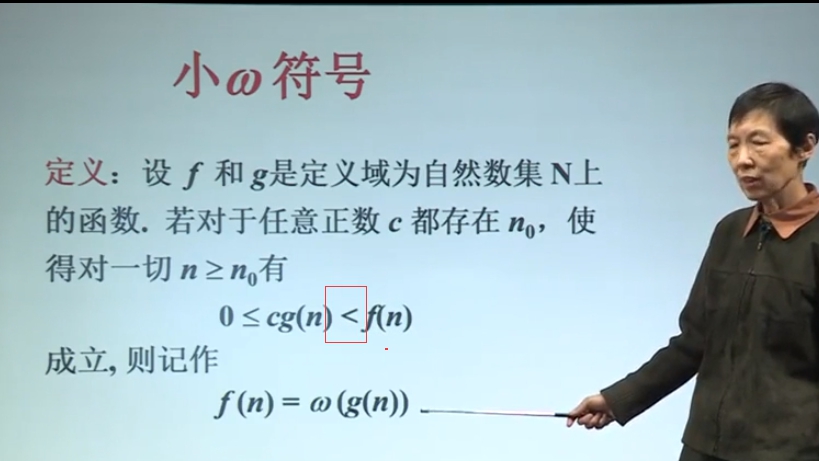 小ω符号
定义：设 f 和 g是定义域为自然数集 N上
的函数. 若对于任意正数 c 都存在 n₀，使
得对一切 n ≥ n₀有
0 ≤ cg(n) < f(n)
成立, 则记作
f (n) = ω (g(n))